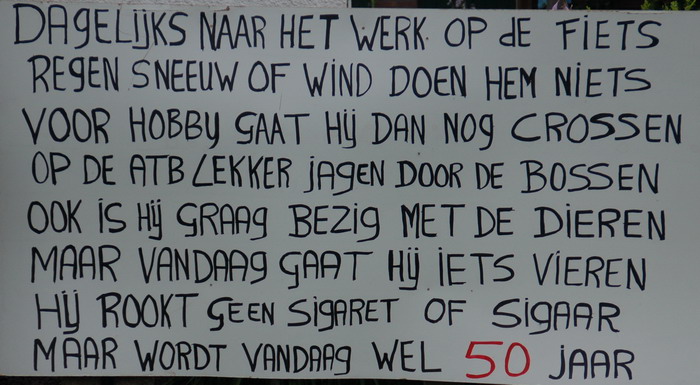 DAGELIJKS NAAR HET WERK OP dE FIETS
REGEN SNEEUW OF WIND DOEN HEM NIETS
VOOR HOBBY GAAT HIJ DAN NOG CROSSEN
OP DE ATB LEKKER JAGEN DOOR DE BOSSEN
OOK IS HIJ GRAAG BEZIG MET DE DIEREN
MAAR VANDAAG GAAT HIJ IETS VIEREN
HIJ ROOKT GEEN SIGARET OF SIGAAR
MAAR WORDT VANDAAG WEL 50 JAAR